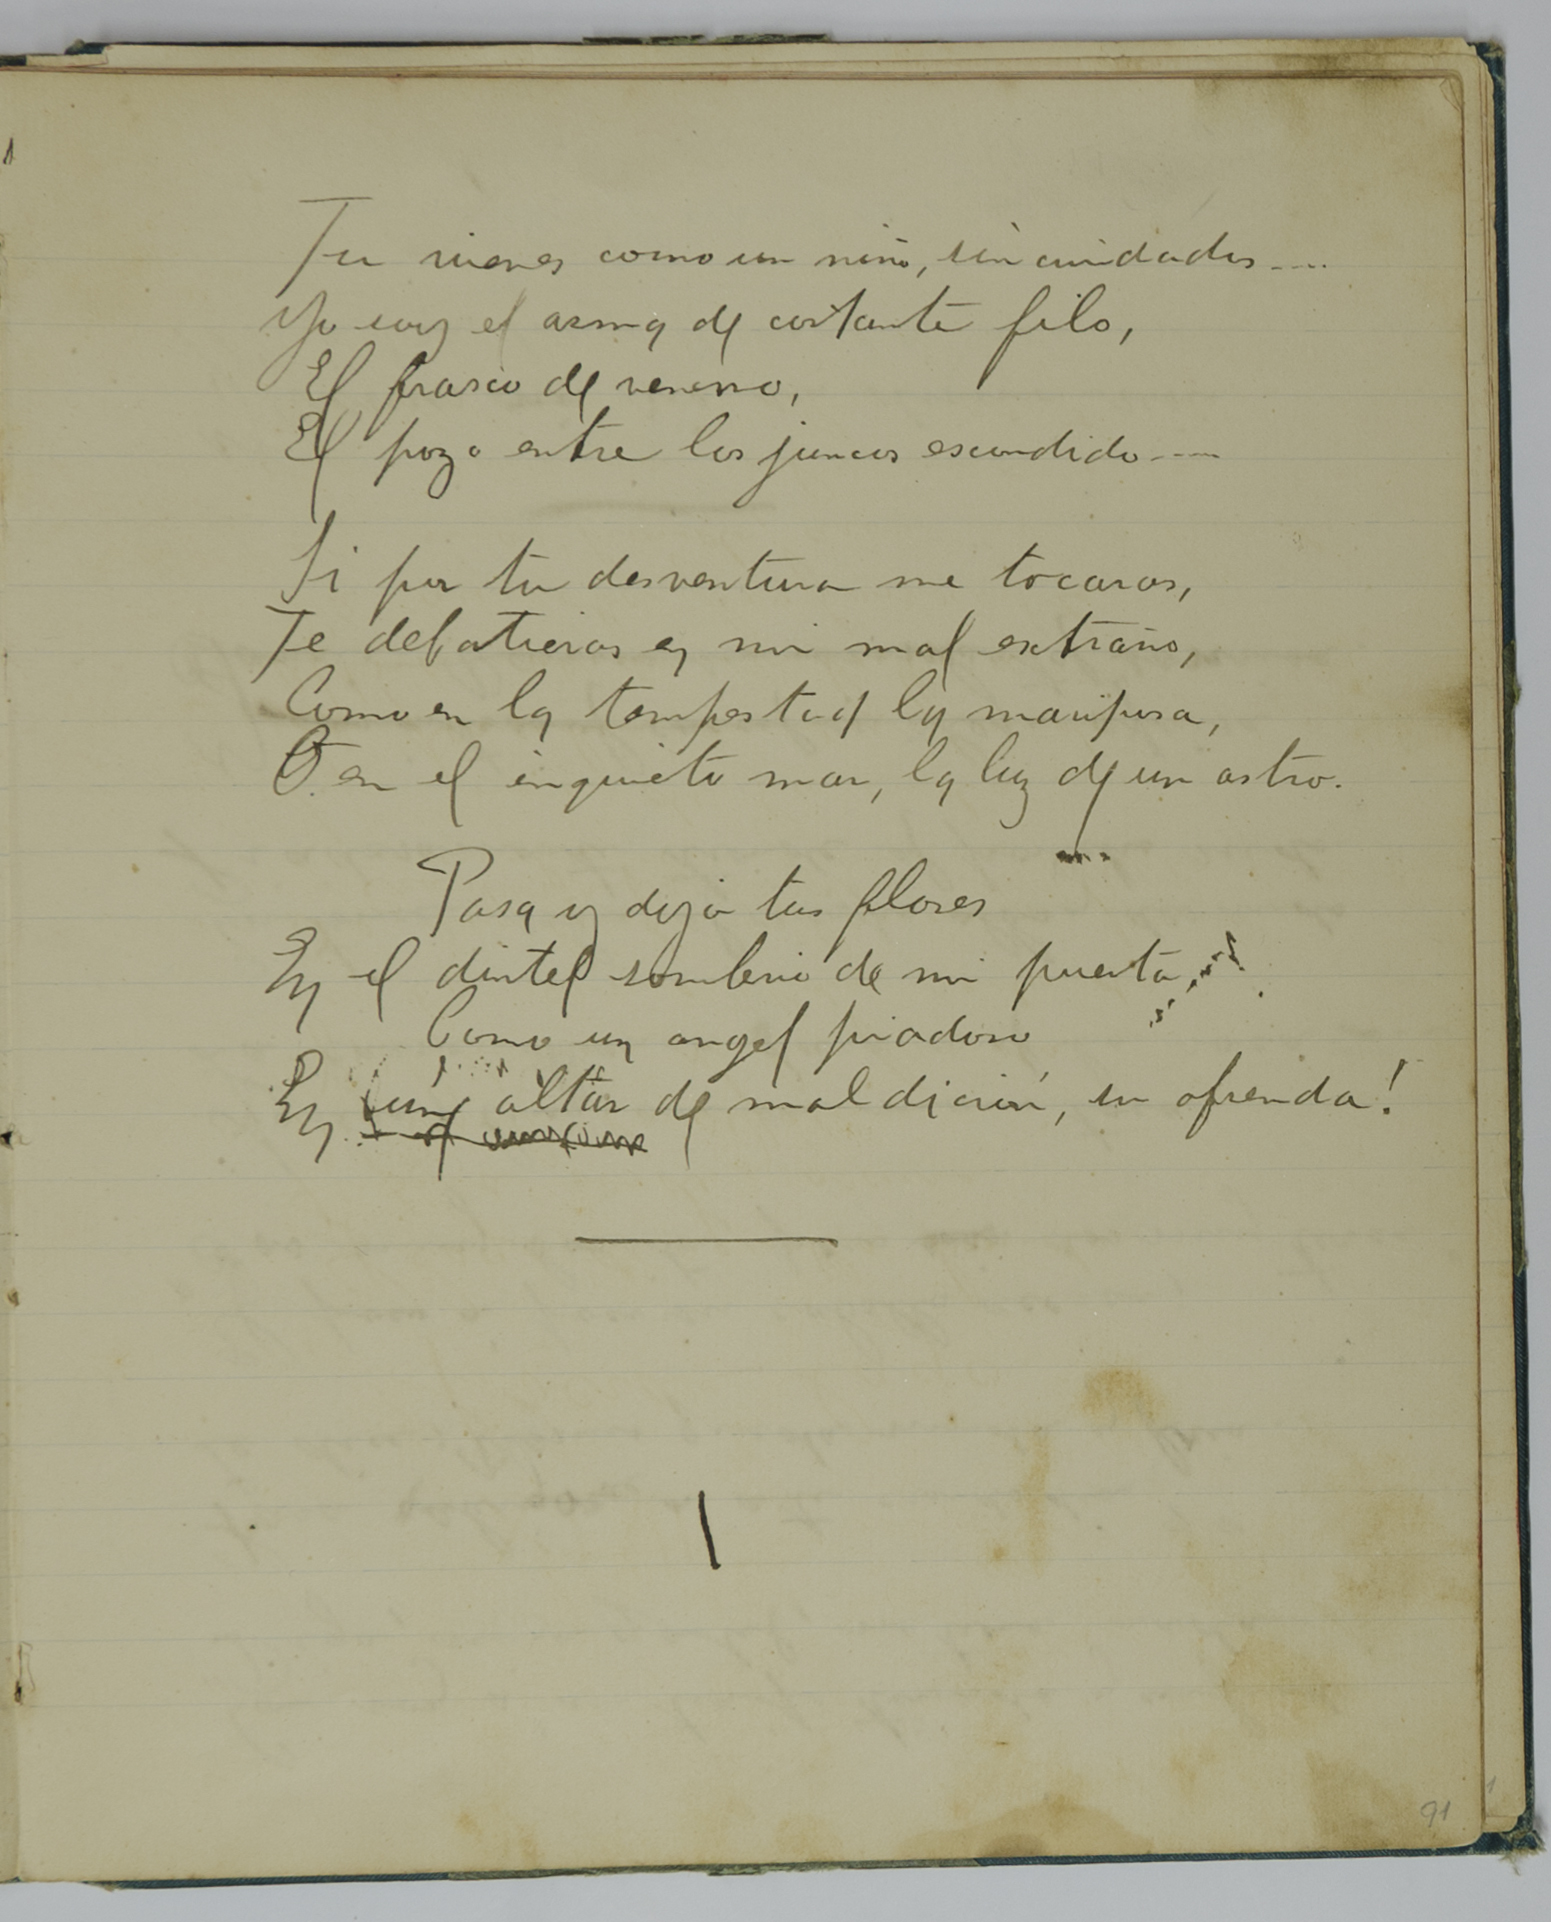 Tu vienes como un niño, sin cuidados....
Yo soy el arma de cortante filo,
El frasco de veneno,
El pozo entre los juncos escondido....
Si por tu desventura me tocaras,
Te debatieras en mi mal extraño,
Como en la tempestad la mariposa,
O en el inquieto mar, la luz de un astro.
Pasa y deja tus flores
En el dintel sombrio de mi puerta,
Como un angel piadoso
En un altar de maldición, su ofrenda!
91